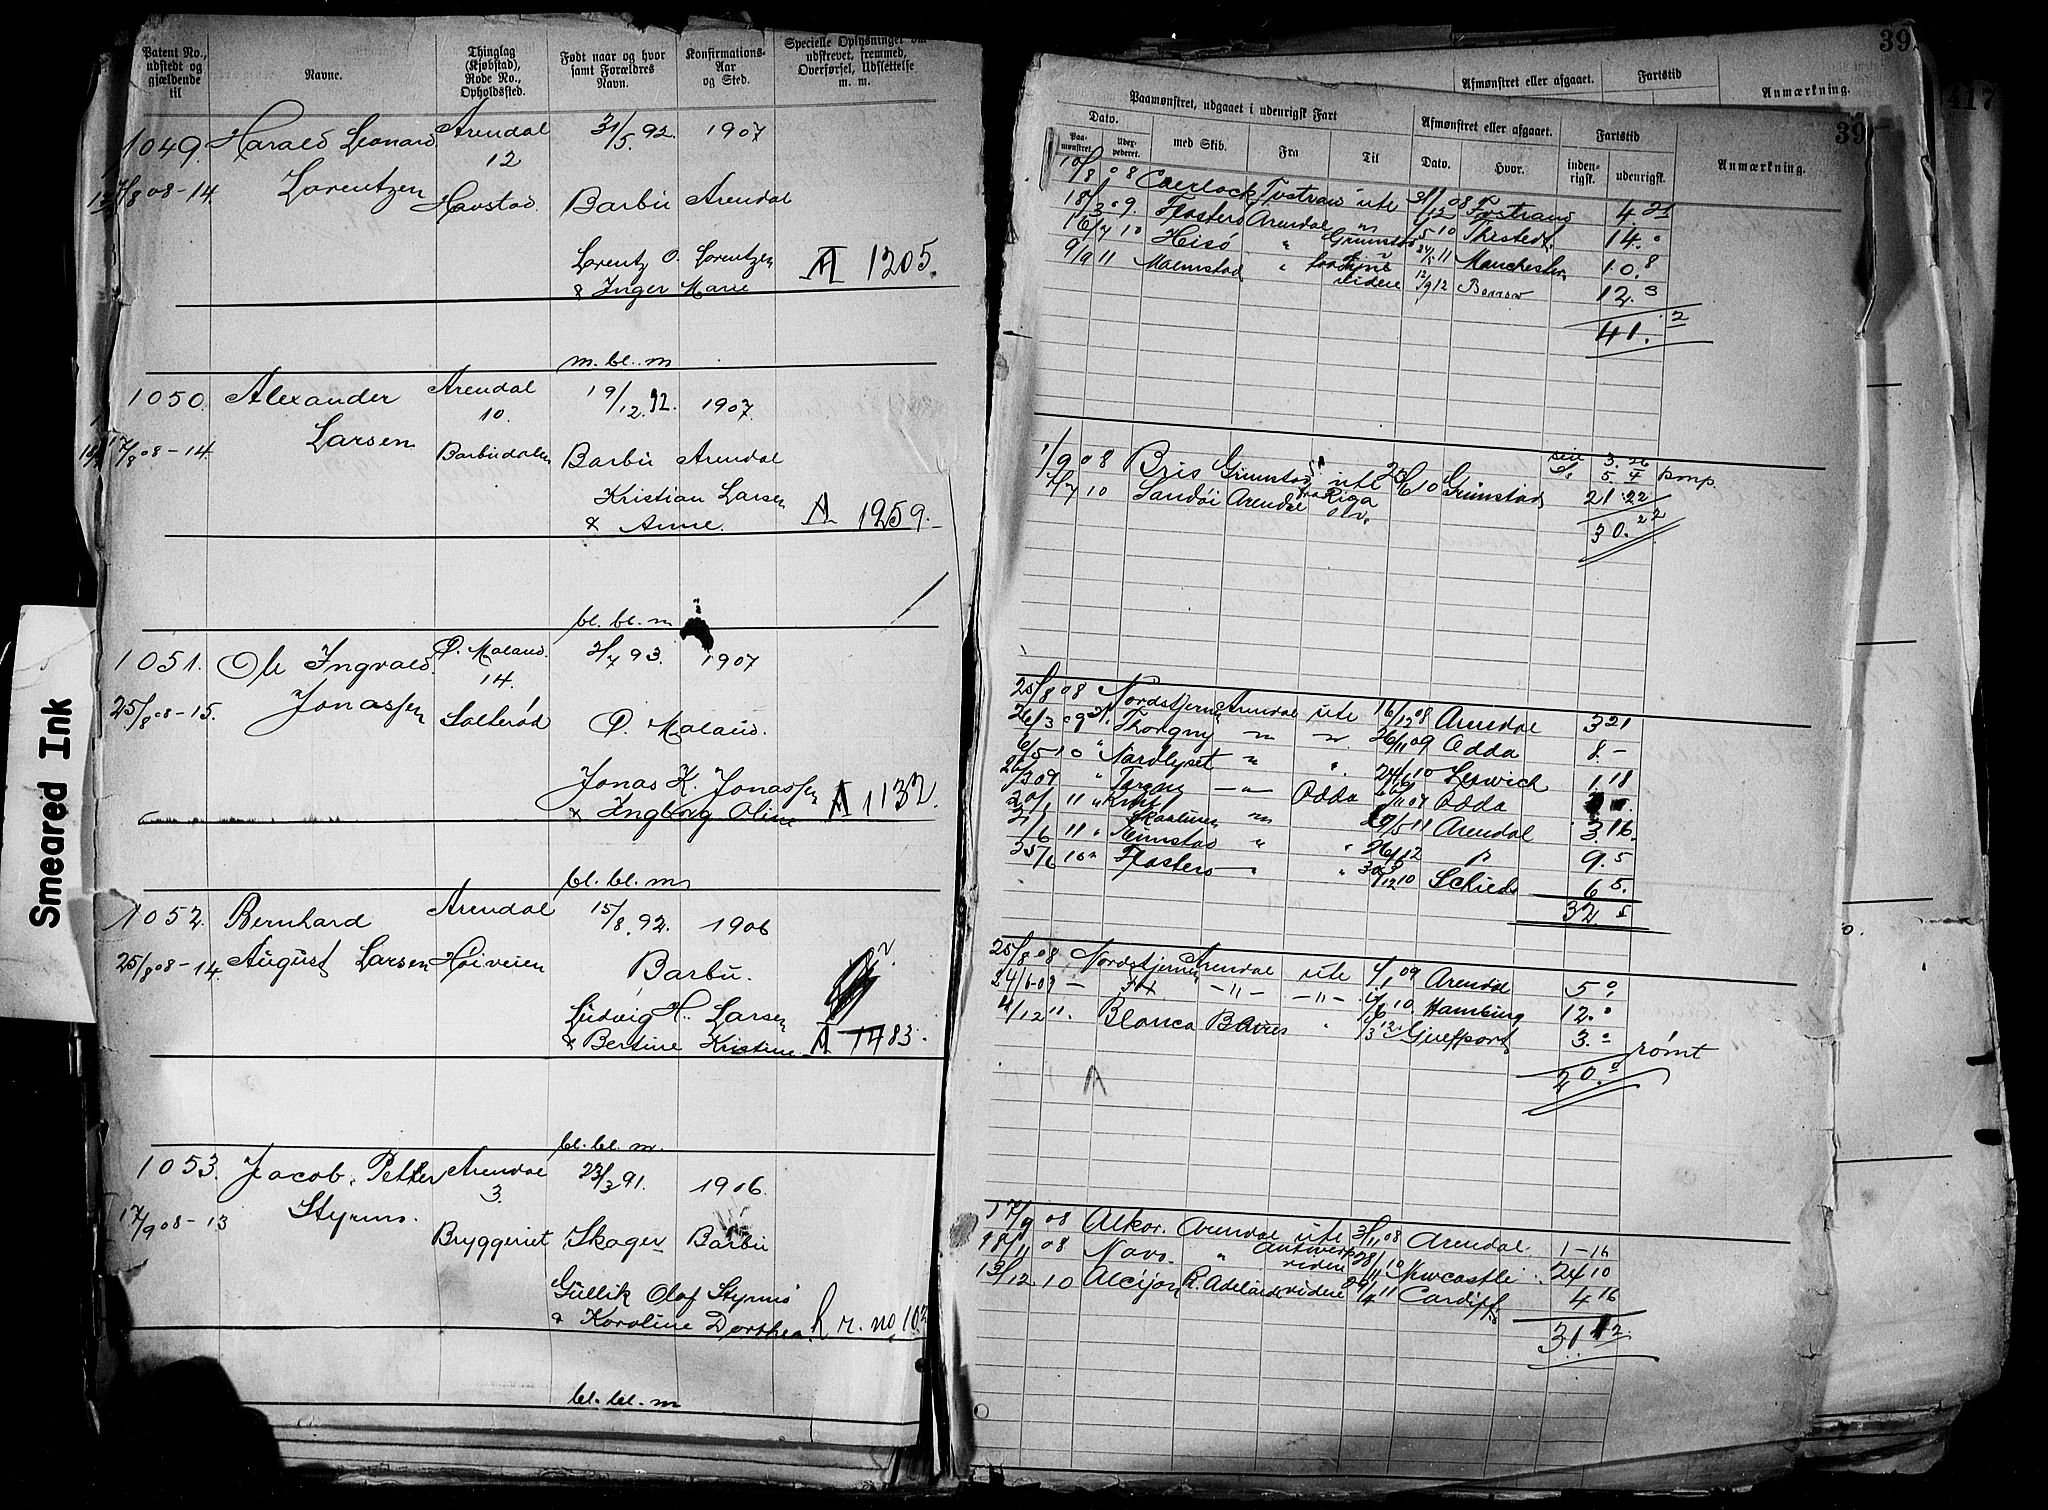 Patent No., udstedt og gjældende til
Navne.
Thinglag (Kjøbstad), Rode No., Opholdssted.
Født naar og hvor samt Forældres Navn.
Konfirmations-Aar og Sted.
Specielle Oplysninger om udskrevet, fremmed, Overførsel, Udslettelse m. m.
1049. Harald Leonard Arendal 31/5 92. 1907
Lorentzen 12
17/8 08-14. Havstad. Barbu Arendal
Lorentz O. Lorentzen A 1205.
& Inger Marie
m. bl. m
1050. Alexander Arendal 19/12.92. 1907.
Larsen 10.
17/8 08-14. Barbudalen Barbu Arendal
Kristian Larsen
& Anne. A 1259.
bl. bl. m
1051. Ole Ingvald Ø. Moland. 2/7 93. 1907
Jonassen 14.
25/8 08-15. Salterød Ø. Moland.
Jonas K. Jonassen A 1132.
& Ingborg Oline
bl. bl. m
1052. Bernhard Arendal 15/8. 92. 1906
25/8 08-14. August Larsen Høiveien Barbu.
Ludvig H. Larsen
& Bertine Kristine A 1483.
bl. bl. m.
1053. Jacob Petter Arendal 23/3 91. 1906.
Styrmo. 3.
17/9 08-13 Bryggeriet Skoger Barbu
Gullik Olaf Styrmo
& Karoline Dorthea. h r. no 103
bl. bl. m
Smeared Ink
39
417
Afmønstret eller afgaaet.
Fartstid
Anmærkning.
39
Paamønstret, udgaaet i udenrigsk Fart
Afmønstret eller afgaaet.
Fartstid
Anmærkning.
Dato.
Paa-mønstret.
Udex-pederet.
med Skib.
Fra
Til
Dato.
Hvor.
inden-rigsk.
udenrigsk.
10/8 08 Caerlock ute 08 4. 21
18/3 09. Flosters Arendal " 10 Thistedt 14. 0
16/7 10 Hisø " Grimstad 11 Manchester 10. 8
9/9 11 Malmstad " videre 12/9 12 Barrow 12. 3
41. 2
1/9 08 Bris Grimstad ute 10 Grimstad
7 10 Sandøi Arendal Riga 21. 22
30. 22
25/8 08 Nordstjernen Arendal ute 16/12 08 Arendal 3 21
26/3 09 Thorgny " " 26/11 09 Odda 8. -
6/5 10 " Nordlyset " " 10 Lerwich 1. 18
26/3 09 " Torgny - " - Odda Odda
20/1 11 " Skaaluren " 5 11 Arendal 3. 16
6 11 " Rimstad " " 12 " 9. 5
25/6 10 " Flosters - " " 30/12 10 Schied 6 5.
32 5
25/8 08 Nordstjernen Arendal ute 4/1 09 Arendal 5 0
24/6 09 - - " - - " - 10 Hamburg 12. 0
4/12 11. Blanca B. Aires " /3 12 Gulfport 3. 0 rømt
20. 0
A
17/9 08 Alkor. Arendal ute 3/11 08 Arendal 1-16
18/11 08 Navo. " Antwerp videre 28/11 10 Newcastle 24 10
13/12 10 Alcijon P. Adelaide videre 29/4 11 Cardiff. 4 16
31 12.